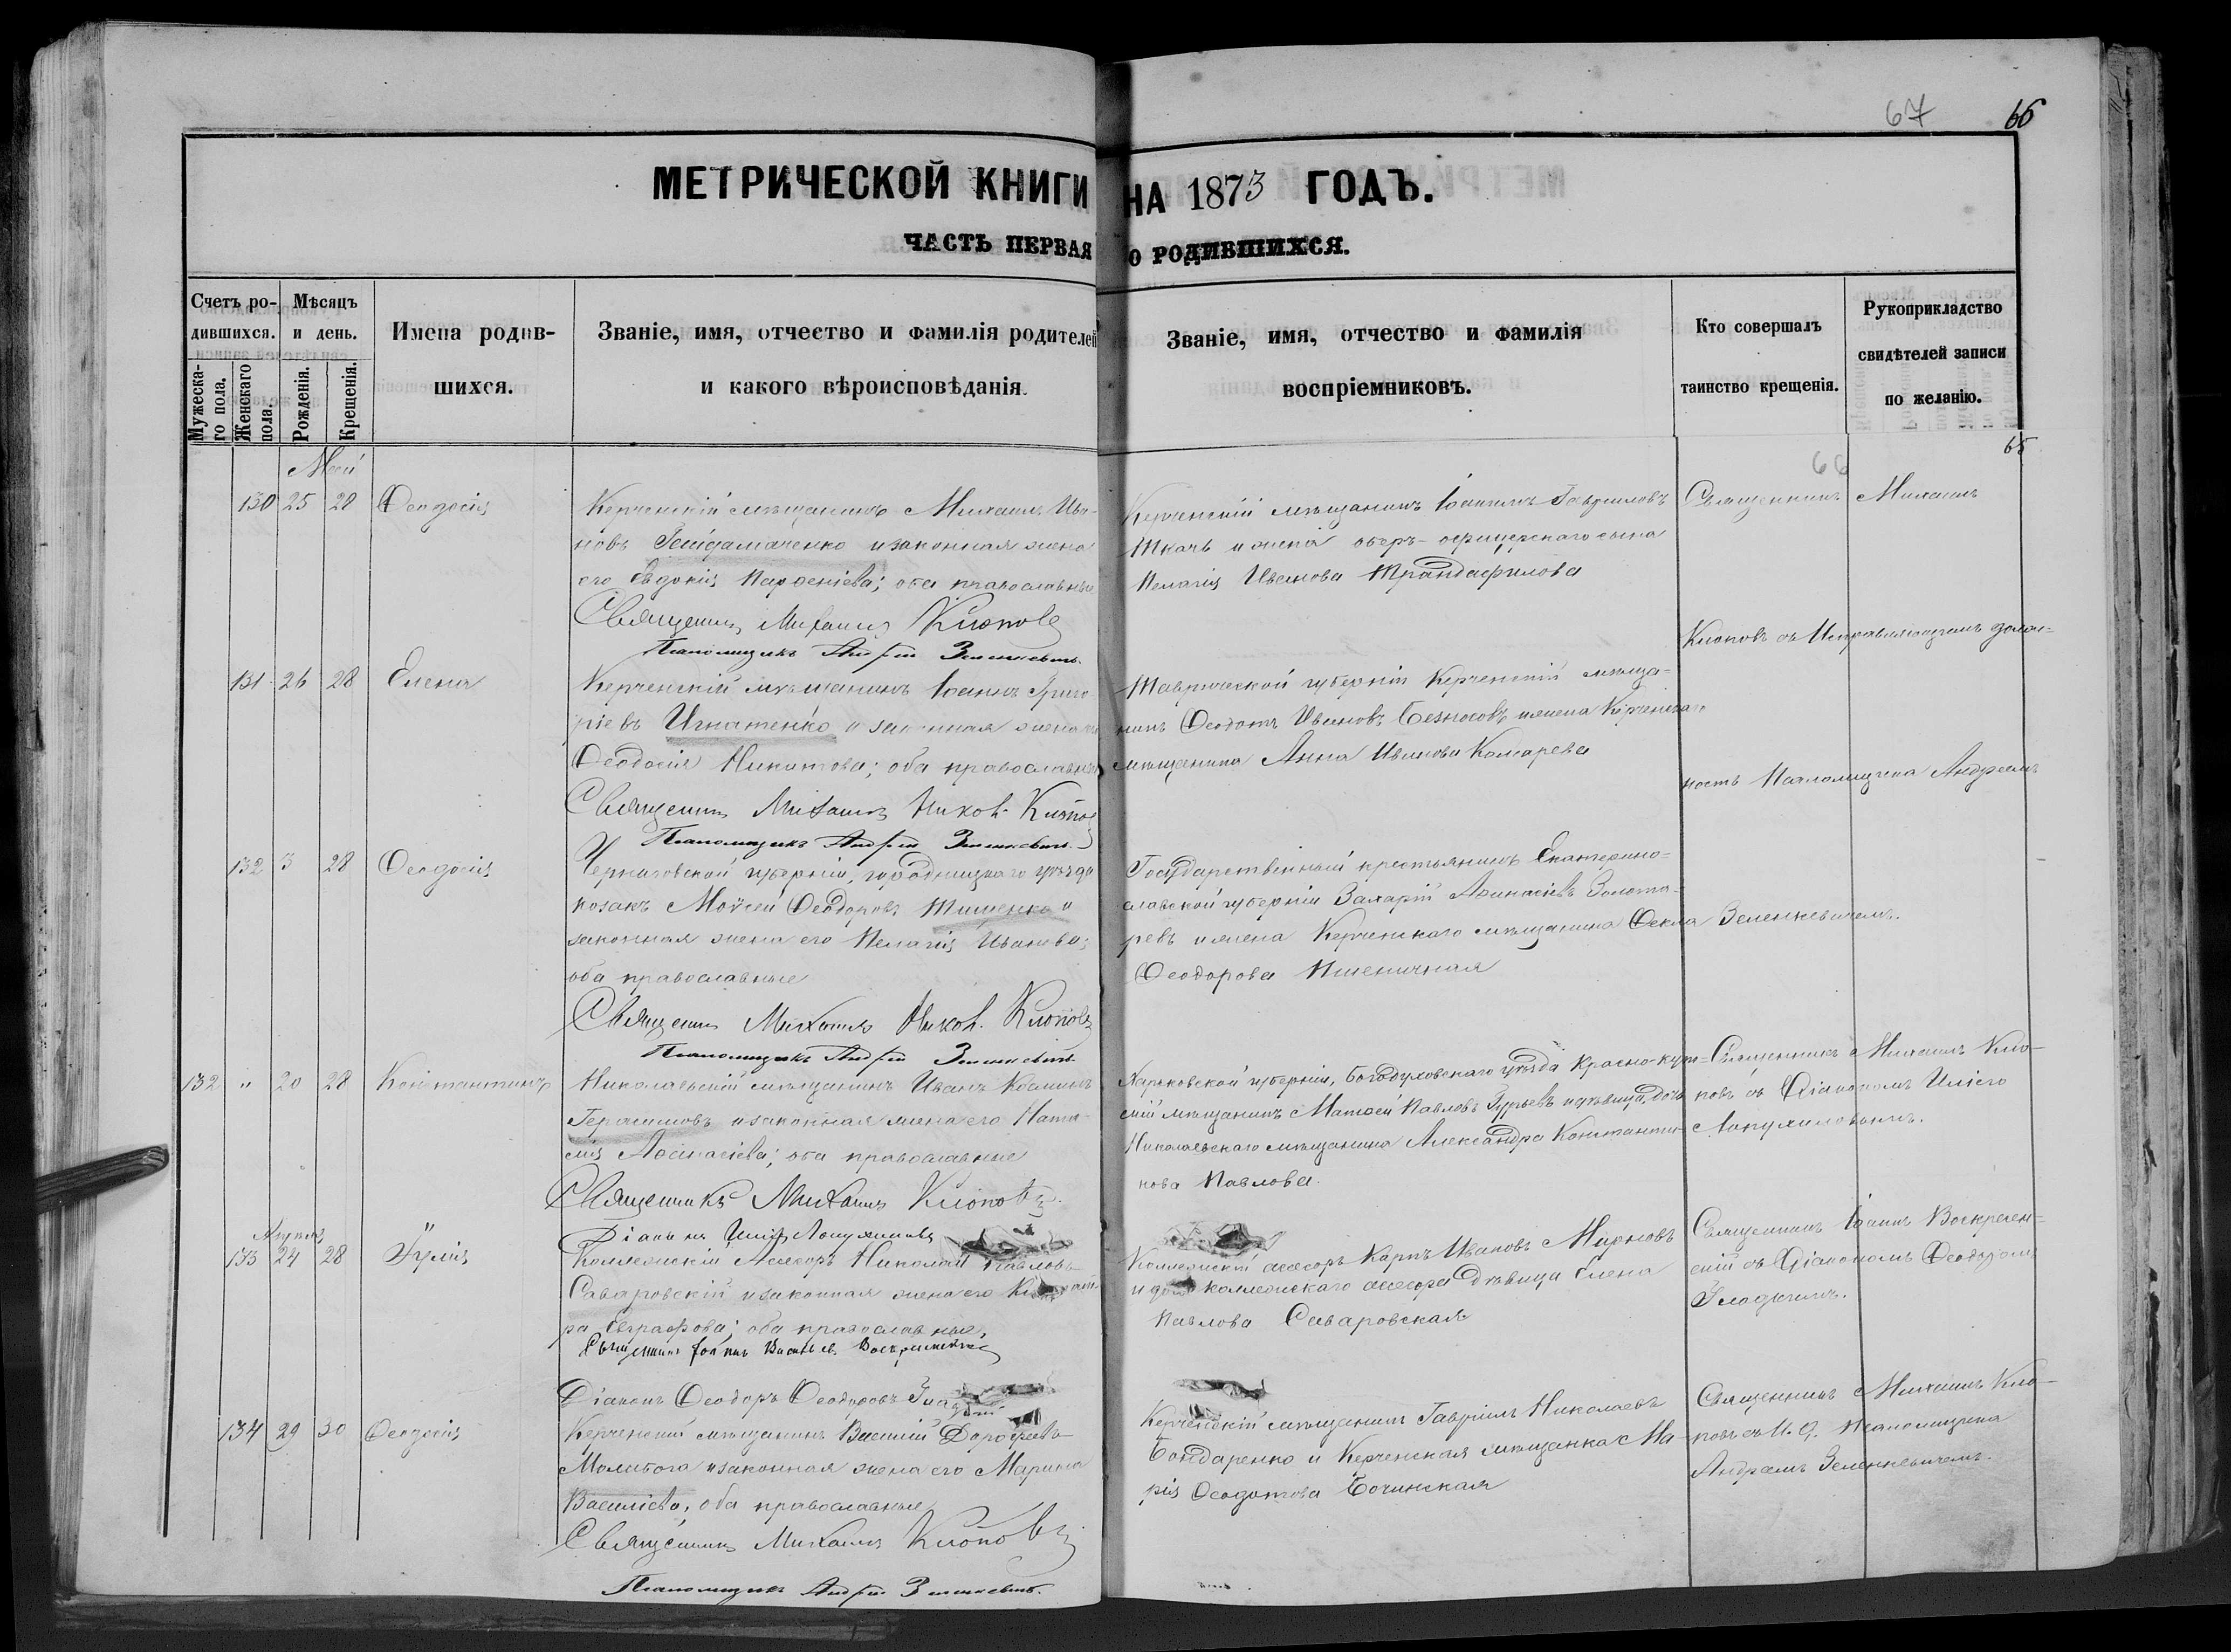 67 66
МЕТРИЧЕСКОЙ КНИГИ НА 1873 ГОДЪ.
ЧАСТЬ ПЕРВАЯ О РОДИВШИХСЯ.
Счетъ ро-
дившихся.
Мужеска-
го пола.
Женскаго
пола.
Мѣсяцъ
и день.
Рожденія.
Крещенія.
Имена родив-
шихся.
Званіе, имя, отчество и фамилія родителей
и какого вѣроисповѣданія.
Званіе, имя, отчество и фамилія
воспріемниковъ.
Кто совершалъ
таинство крещенія.
Рукоприкладство
свидѣтелей записи
по желанію.
66 65
Май
130 25 28 Ѳеодосія
Керченскій мѣщанинъ Михаилъ Ива-
новъ Гайдамаченко и законная жена
его Евдокія Парѳеніева; оба православные
Священникъ Михаилъ Клоповъ
Псаломщикъ Андрей Зеленкевичъ
Керченскій мѣщанинъ Іоакимъ Гавриловъ
Ткачъ и жена оберъ-офицерскаго сына
Пелагія Иванова Трандафилова
Священникъ Михаилъ
Клоповъ съ Исправляющимъ долж=
ность Псаломщика Андреемъ
Зеленкевичемъ.
131 26 28 Елена
Керченскій мѣщанинъ Іоаннъ Григо-
ріевъ Игнатенко и законная жена его
Ѳеодосія Никитова; оба православные
Священникъ Михаилъ Никол. Клоповъ
Псаломщикъ Андрей Зеленкевичъ
Таврической губерніи Керченскій мѣща=
нинъ Ѳеодотъ Ивановъ Безносовъ и жена Керченскаго
мѣщанина Анна Иванова Комарева
132 3 28 Ѳеодосія
Черниговской губерніи, городницкаго уѣзда
козакъ Моѵсей Ѳеодоровъ Тишенко и
законная жена его Пелагія Иванова;
оба православные
Священникъ Михаилъ Никол. Клоповъ
Псаломщикъ Андрей Зеленкевичъ
Государственный крестьянинъ Екатерино=
славской губерніи Захарій Аѳанасіевъ Золота-
ревъ и жена Керченскаго мѣщанина Ѳекла
Ѳеодорова Пшеничная
132 " 20 28 Константинъ
Николаевскій мѣщанинъ Иванъ Козминъ
Герасимовъ и законная жена его Ната-
лія Аѳанасіева; оба православные
Священникъ Михаилъ Клоповъ.
Діаконъ Илія Лопухиновъ
Харьковской губерніи, Богодуховскаго уѣзда Красно-кут=
скій мѣщанинъ Матѳей Павловъ Гурьевъ и дѣвица, дочь
Николаевскаго мѣщанина Александра Константи-
нова Павлова.
Священникъ Михаилъ Кло-
повъ съ Діакономъ Иліею
Лопухиновымъ.
Апрѣль
133 24 28 Іулія
Коллежскій Асессоръ Николай Павловъ
Саваровскій и законная жена его
ра Евграфова; оба православные,
Священникъ Іоаннъ Васильев. Воскресенскій
Діаконъ Ѳеодоръ Ѳеодоровъ Гладкій
Коллежскій асессоръ Карпъ Ивановъ Мирновъ
и дочь коллежскаго асессора дѣвица Елена
Павлова Саваровская
Священникъ Іоаннъ Воскресен=
скій съ Діакономъ Ѳеодоромъ
Гладкимъ.
134 29 30 Ѳеодосія
Керченскій мѣщанинъ Василій Дороѳеевъ
Молибога и законная жена его Марина
Василіева, оба православные
Священникъ Михаилъ Клоповъ
Псаломщикъ Андрей Зеленкевичъ.
Керченскій мѣщанинъ Гавріилъ Николаевъ
Бондаренко и Керченская мѣщанка Ма-
рія Ѳеодотова Бочинская
Священникъ Михаилъ Кло-
повъ съ И. д. Псаломщика
Андреемъ Зеленкевичемъ.